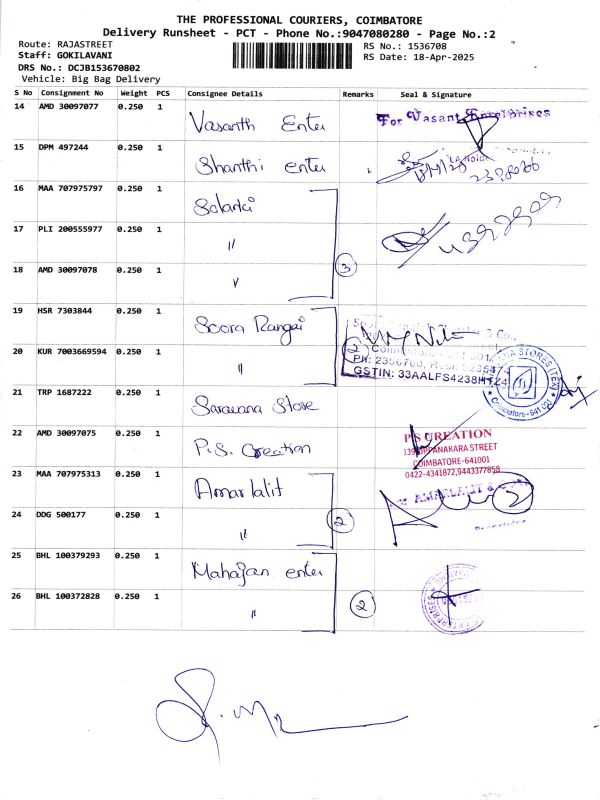 THE PROFESSIONAL COURIERS, COIMBATORE
Delivery Runsheet - PCT - Phone No.:9047080280 - Page No.:2
Route: RAJASTREET
RS No.: 1536708
Staff: GOKILAVANI
RS Date: 18-Apr-2025
DRS No.: DCJB153670802
Vehicle: Big Bag Delivery
S No Consignment No Weight PCS Consignee Details Remarks Seal & Signature
14 AMD 30097077 0.250 1 Vasanth Enter For Vasant Enterprises
15 DPM 497244 0.250 1 Shanthi enter
16 MAA 707975797 0.250 1 Solanki
17 PLI 200555977 0.250 1 〃
18 AMD 30097078 0.250 1 〃 3
19 HSR 7303844 0.250 1 Soora Rangai
20 KUR 7003669594 0.250 1 〃 2
GSTIN: 33AALFS4238H1Z4
STORES (TEX)
Coimbatore - 641 001
21 TRP 1687222 0.250 1 Saravana Store
22 AMD 30097075 0.250 1 P.S. Creation P S CREATION
139 OPPANAKARA STREET
COIMBATORE-641001
0422-4341872,9443377859
23 MAA 707975313 0.250 1 Amarlalit AMARLALIT &
24 DDG 500177 0.250 1 〃 2
25 BHL 100379293 0.250 1 Mahajan enter
26 BHL 100372828 0.250 1 〃 2